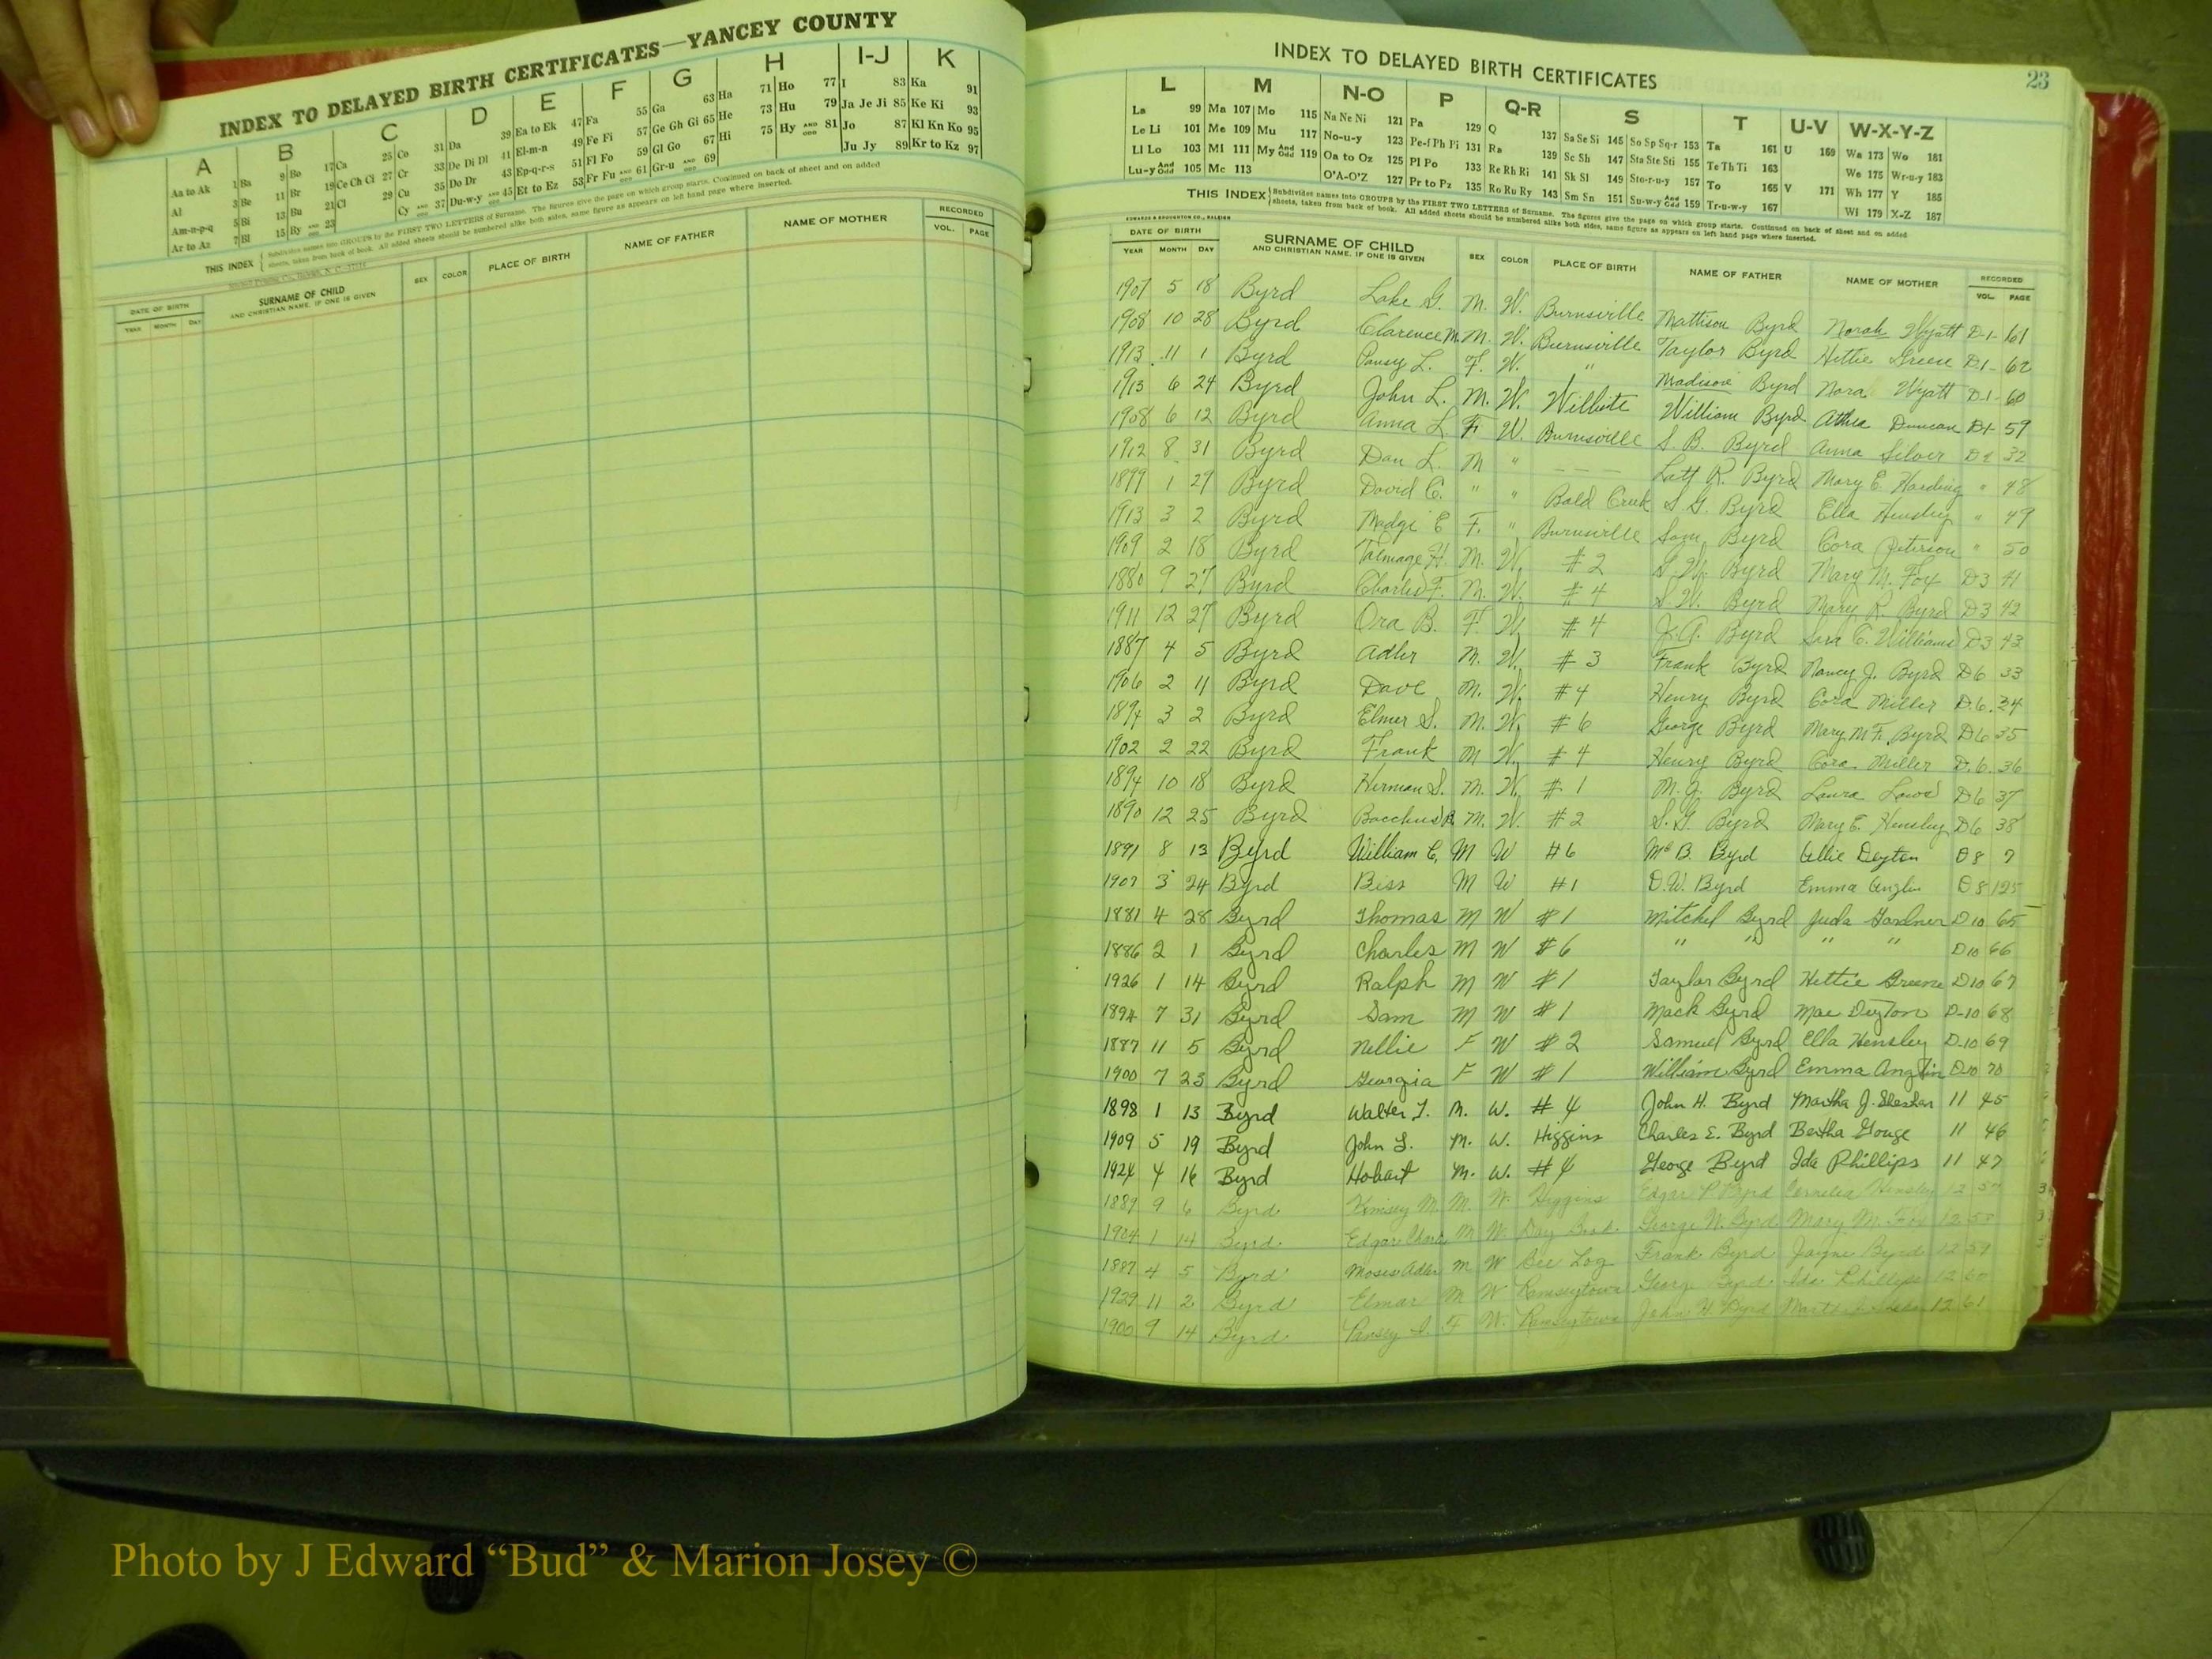 INDEX TO DELAYED BIRTH CERTIFICATES—YANCEY COUNTY
A B C D E F G H I-J K
Aa to Ak 1 Ba 9 Bo 17 Ca 25 Co 31 Da 39 Ea to Ek 47 Fa 55 Ga 63 Ha 71 Ho 77 I 83 Ka 91
Al 3 Be 11 Br 19 Ce Ch Ci 27 Cr 33 De Di Dl 41 El-m-n 49 Fe Fi 57 Ge Gh Gi 65 He 73 Hu 79 Ja Je Ji 85 Ke Ki 93
Am-n-p-q 5 Bi 13 Bu 21 Cl 29 Cu 35 Do Dr 43 Ep-q-r-s 51 Fl Fo 59 Gl Go 67 Hi 75 Hy AND ODD 81 Jo 87 Kl Kn Ko 95
Ar to Az 7 Bl 15 By AND ODD 23 Cy AND ODD 37 Du-w-y AND ODD 45 Et to Ez 53 Fr Fu AND ODD 61 Gr-u AND ODD 69 Ju Jy 89 Kr to Kz 97
THIS INDEX { Subdivides names into GROUPS by the FIRST TWO LETTERS of Surname. The figures give the page on which group starts. Continued on back of sheet and on added
sheets, taken from back of book. All added sheets should be numbered alike both sides, same figure as appears on left hand page where inserted.
DATE OF BIRTH SURNAME OF CHILD SEX COLOR PLACE OF BIRTH NAME OF FATHER NAME OF MOTHER RECORDED
YEAR MONTH DAY AND CHRISTIAN NAME, IF ONE IS GIVEN VOL. PAGE
INDEX TO DELAYED BIRTH CERTIFICATES 23
L M N-O P Q-R S T U-V W-X-Y-Z
La 99 Ma 107 Mo 115 Na Ne Ni 121 Pa 129 Q 137 Sa Se Si 145 So Sp Sq-r 153 Ta 161 U 169 Wa 173 Wo 181
Le Li 101 Me 109 Mu 117 No-u-y 123 Pe-f Ph Pi 131 Ra 139 Sc Sh 147 Sta Ste Sti 155 Te Th Ti 163 We 175 Wr-u-y 183
Ll Lo 103 Mi 111 My And Odd 119 Oa to Oz 125 Pl Po 133 Re Rh Ri 141 Sk Sl 149 Sto-r-u-y 157 To 165 V 171 Wh 177 Y 185
Lu-y And Odd 105 Mc 113 O'A-O'Z 127 Pr to Pz 135 Ro Ru Ry 143 Sm Sn 151 Su-w-y And Odd 159 Tr-u-w-y 167 Wi 179 X-Z 187
THIS INDEX { Subdivides names into GROUPS by the FIRST TWO LETTERS of Surname. The figures give the page on which group starts. Continued on back of sheet and on added
sheets, taken from back of book. All added sheets should be numbered alike both sides, same figure as appears on left hand page where inserted.
EDWARDS & BROUGHTON CO., RALEIGH
DATE OF BIRTH SURNAME OF CHILD SEX COLOR PLACE OF BIRTH NAME OF FATHER NAME OF MOTHER RECORDED
YEAR MONTH DAY AND CHRISTIAN NAME, IF ONE IS GIVEN VOL. PAGE
1907 5 18 Byrd Lake G. M. W. Burnsville Mattison Byrd Norah Wyatt D-1- 61
1908 10 28 Byrd Clarence M. M. W. Burnsville Taylor Byrd Hettie Greene D.1- 62
1913 11 1 Byrd Pansy L. F. W. " Madison Byrd Nora Wyatt D-1- 60
1913 6 24 Byrd John L. M. W. Wilhite William Byrd Athea Duncan D1- 59
1908 6 12 Byrd Anna L F W. Burnsville S. B. Byrd Anna Silver D2 32
1912 8 31 Byrd Dan L. M " — — — Latt R. Byrd Mary E. Harding " 48
1899 1 27 Byrd David C. " " Bald Creek S. G. Byrd Ella Hensley " 49
1913 3 2 Byrd Madge E F. " Burnsville Sam Byrd Cora Peterson " 50
1909 2 18 Byrd Talmage H. M. W. #2 G. W. Byrd Mary M. Fox D3 41
1880 9 27 Byrd Charles F. M. W. #4 S. W. Byrd Mary R. Byrd D3 42
1911 12 27 Byrd Ora B. F. W. #4 J. A. Byrd Sara C. Williams D3 43
1887 4 5 Byrd Adler M. W. #3 Frank Byrd Nancy J. Byrd D6 33
1906 2 11 Byrd Dave M. W. #4 Henry Byrd Cora Miller D.6. 34
1894 3 2 Byrd Elmer S. M. W. #6 George Byrd Mary M. F. Byrd D6 35
1902 2 22 Byrd Frank M W. #4 Henry Byrd Cora Miller D.6. 36
1894 10 18 Byrd Herman S. M. W. #1 M. G. Byrd Laura Laws D6 37
1890 12 25 Byrd Bacchus R. M. W. #2 S. G. Byrd Mary E. Hensley D6 38
1891 8 13 Byrd William C. M W #6 Mc B. Byrd Ollie Deyton D8 7
1907 3 24 Byrd Biss M W #1 D. W. Byrd Emma Anglin D8 125
1881 4 28 Byrd Thomas M W #1 Mitchel Byrd Juda Gardner D10 65
1886 2 1 Byrd Charles M W #6 " " " " D10 66
1926 1 14 Byrd Ralph M W #1 Taylor Byrd Hettie Greene D10 67
1894 7 31 Byrd Sam M W #1 Mack Byrd Mae Deyton D-10 68
1887 11 5 Byrd Nellie F W #2 Samuel Byrd Ella Hensley D-10 69
1900 7 23 Byrd Georgia F W #1 William Byrd Emma Anglin D-10 70
1898 1 13 Byrd Walter T. M. W. #4 John H. Byrd Martha J. 11 45
1909 5 19 Byrd John L. M. W. Higgins Charles E. Byrd Bertha Gouge 11 46
1924 4 16 Byrd Hobart M. W. #4 George Byrd Ida Phillips 11 47
1889 9 6 Byrd Kimsey M. M. W. Higgins Edgar P. Byrd Cornelia Hensley 12
1904 1 14 Byrd Edgar M W George W. Byrd Mary M. Fox 12 58
1887 4 5 Byrd Moses Adler M W Bee Log Frank Byrd Jayne Byrd 12 59
1929 11 2 Byrd Elmer M W Ramseytown George Byrd Ida Phillips 12 60
1900 9 14 Byrd Pansey I. F W. Ramseytown John H Byrd 12 61
Photo by J Edward “Bud” & Marion Josey ©